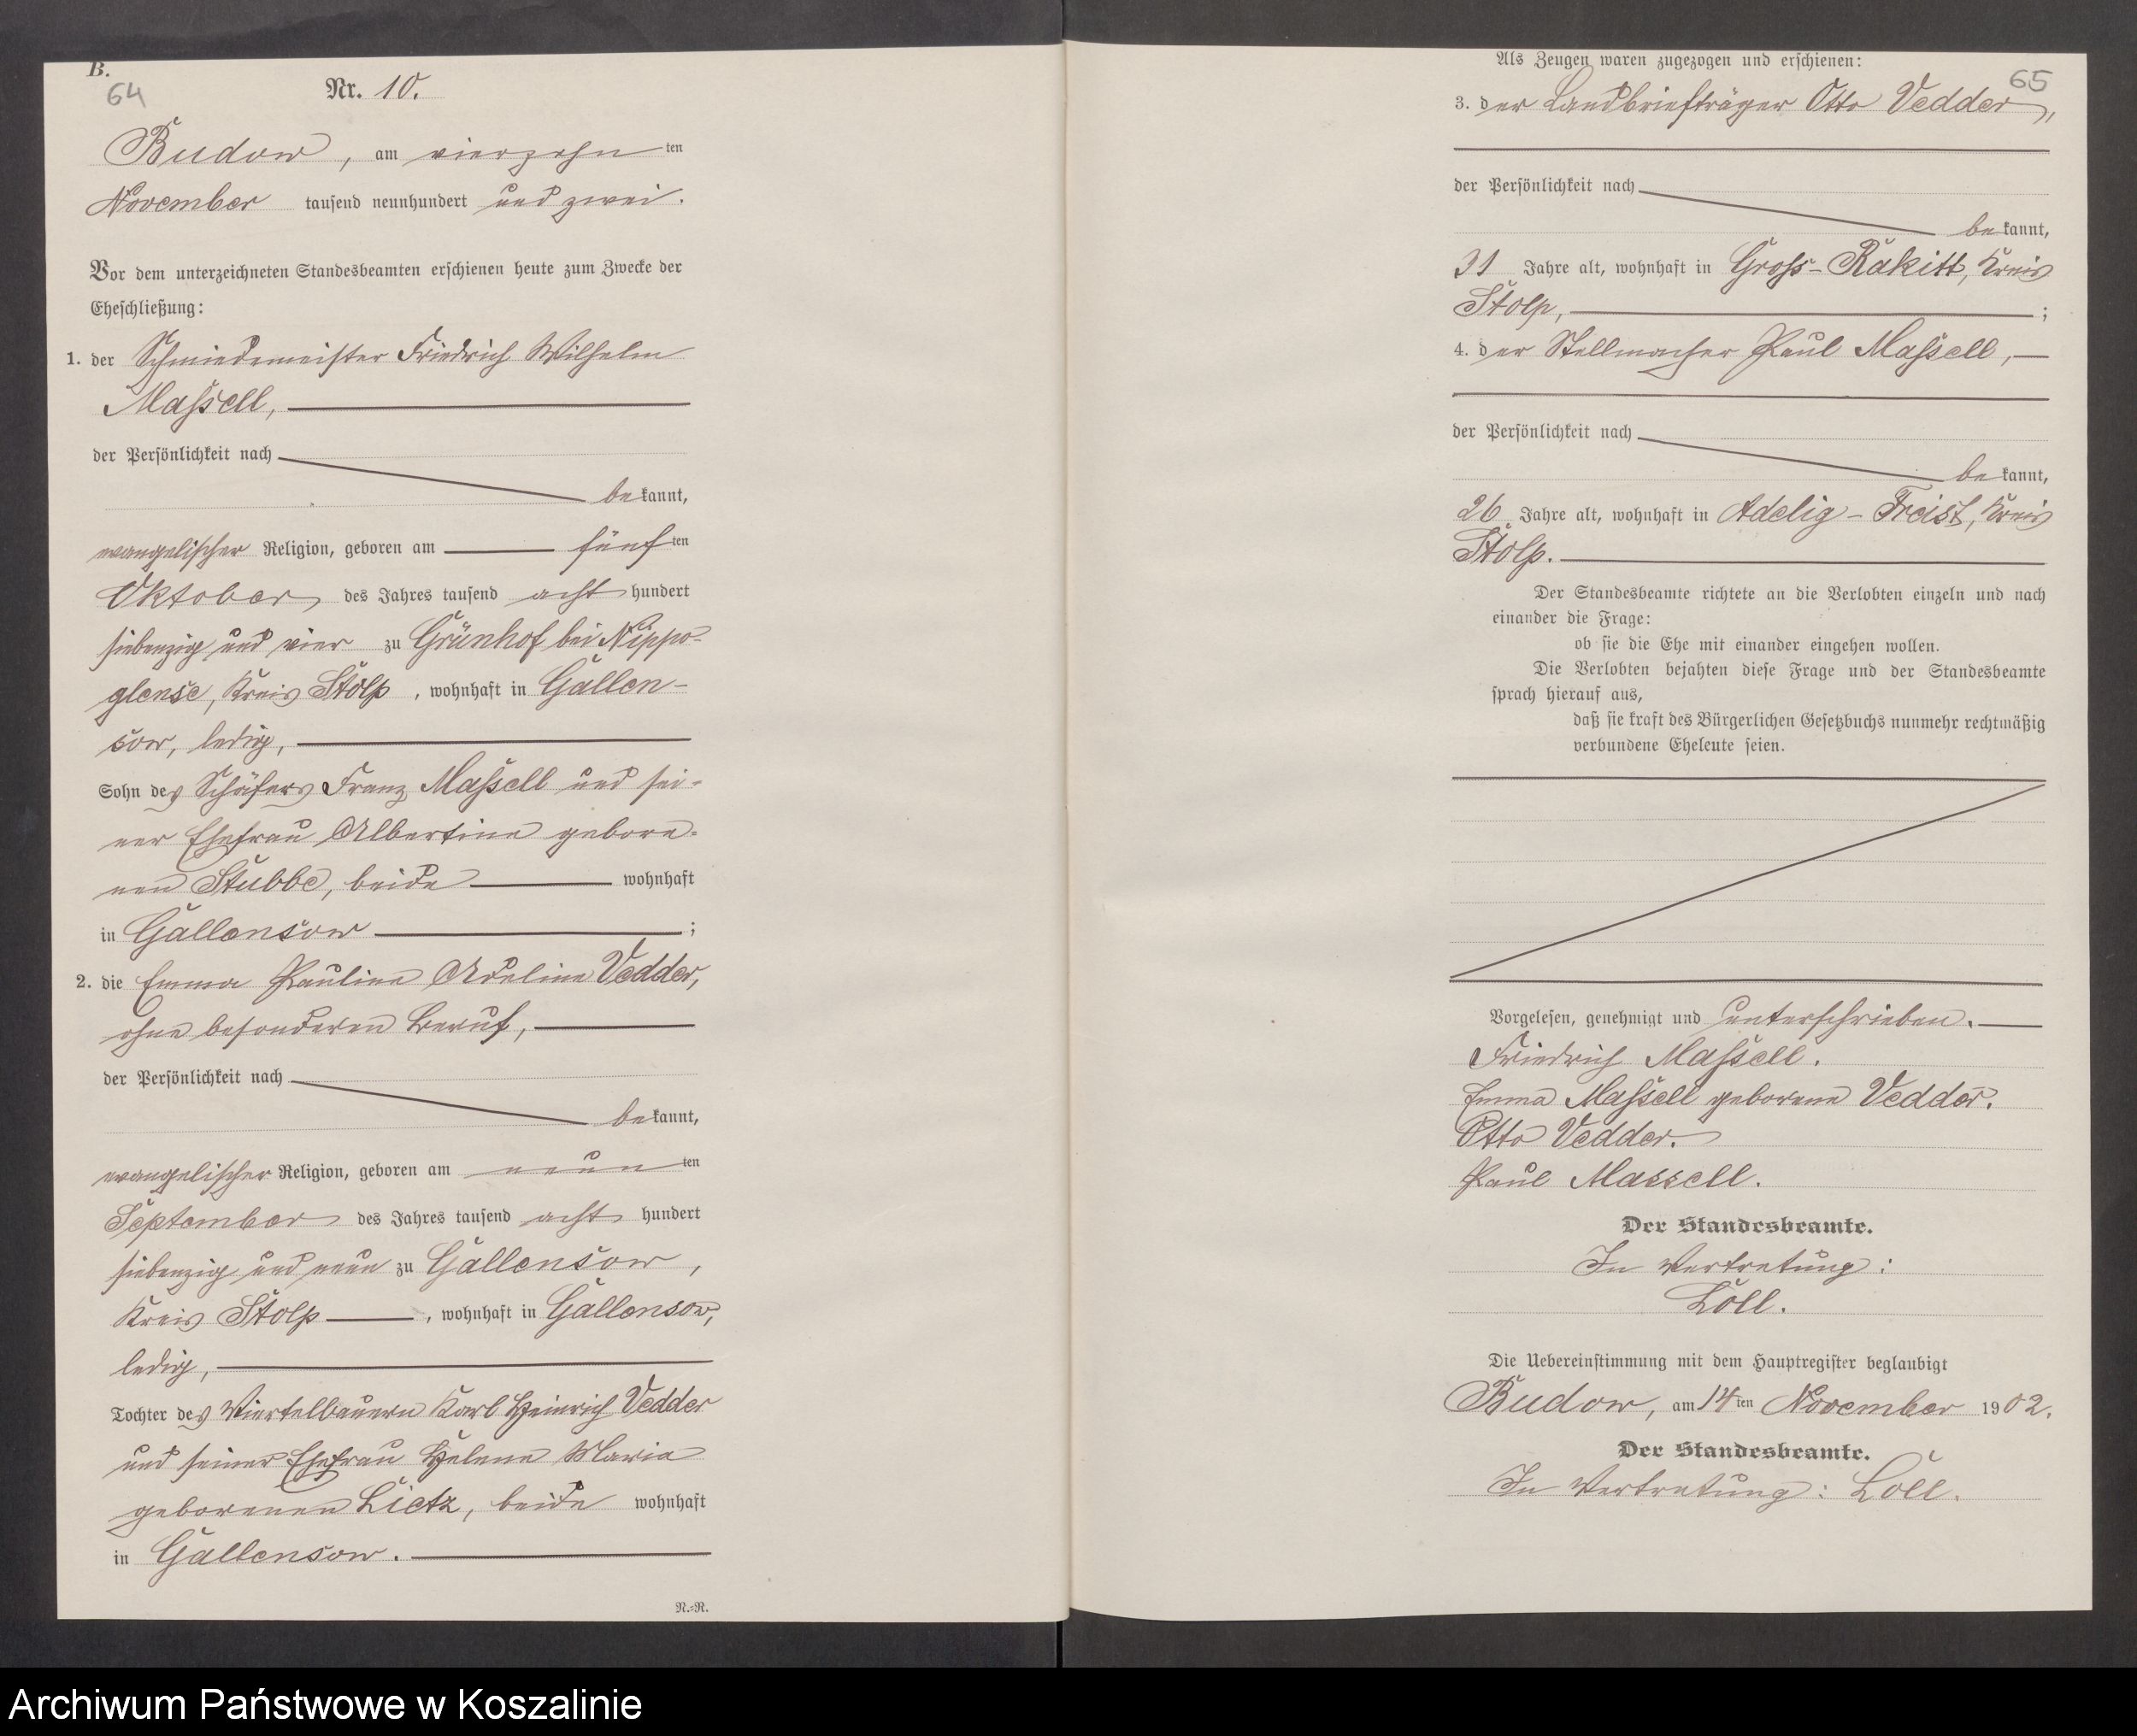 B.
64
Nr. 10.
Budow, am vierzehnten
November tausend neunhundert und zwei.
Vor dem unterzeichneten Standesbeamten erschienen heute zum Zwecke der
Eheschließung:
1. der Schmiedemeister Friedrich Wilhelm
Maßsell,
der Persönlichkeit nach
bekannt,
evangelischer Religion, geboren am fünften
Oktober des Jahres tausend acht hundert
siebenzig und vier zu Grünhof bei Nippo-
glense, Kreis Stolp, wohnhaft in Gallen-
sow, ledig,
Sohn des Schäfers Franz Maßsell und sei-
ner Ehefrau Albertine gebore-
nen Stubbe, beide wohnhaft
in Gallensow ;
2. die Emma Pauline Adeline Vedder,
ohne besonderen Beruf,
der Persönlichkeit nach
bekannt,
evangelischer Religion, geboren am neunten
September des Jahres tausend acht hundert
siebenzig und neun zu Gallensow,
Kreis Stolp, wohnhaft in Gallensow,
ledig,
Tochter des Viertelbauern Karl Heinrich Vedder
und seiner Ehefrau Helene Maria
geborenen Lietz, beide wohnhaft
in Gallensow.
N.-R.
65
Als Zeugen waren zugezogen und erschienen:
3. der Landbriefträger Otto Vedder,
der Persönlichkeit nach
bekannt,
31 Jahre alt, wohnhaft in Groß-Rakitt, Kreis
Stolp, ;
4. der Stellmacher Paul Maßsell,
der Persönlichkeit nach
bekannt,
26 Jahre alt, wohnhaft in Adelig-Freist, Kreis
Stolp.
Der Standesbeamte richtete an die Verlobten einzeln und nach
einander die Frage:
ob sie die Ehe mit einander eingehen wollen.
Die Verlobten bejahten diese Frage und der Standesbeamte
sprach hierauf aus,
daß sie kraft des Bürgerlichen Gesetzbuchs nunmehr rechtmäßig
verbundene Eheleute seien.
Vorgelesen, genehmigt und unterschrieben.
Friedrich Maßsell.
Emma Maßsell geborene Vedder.
Otto Vedder.
Paul Massell.
Der Standesbeamte.
In Vertretung:
Löll.
Die Uebereinstimmung mit dem Hauptregister beglaubigt
Budow, am 14ten November 1902.
Der Standesbeamte.
In Vertretung: Löll.
Archiwum Państwowe w Koszalinie